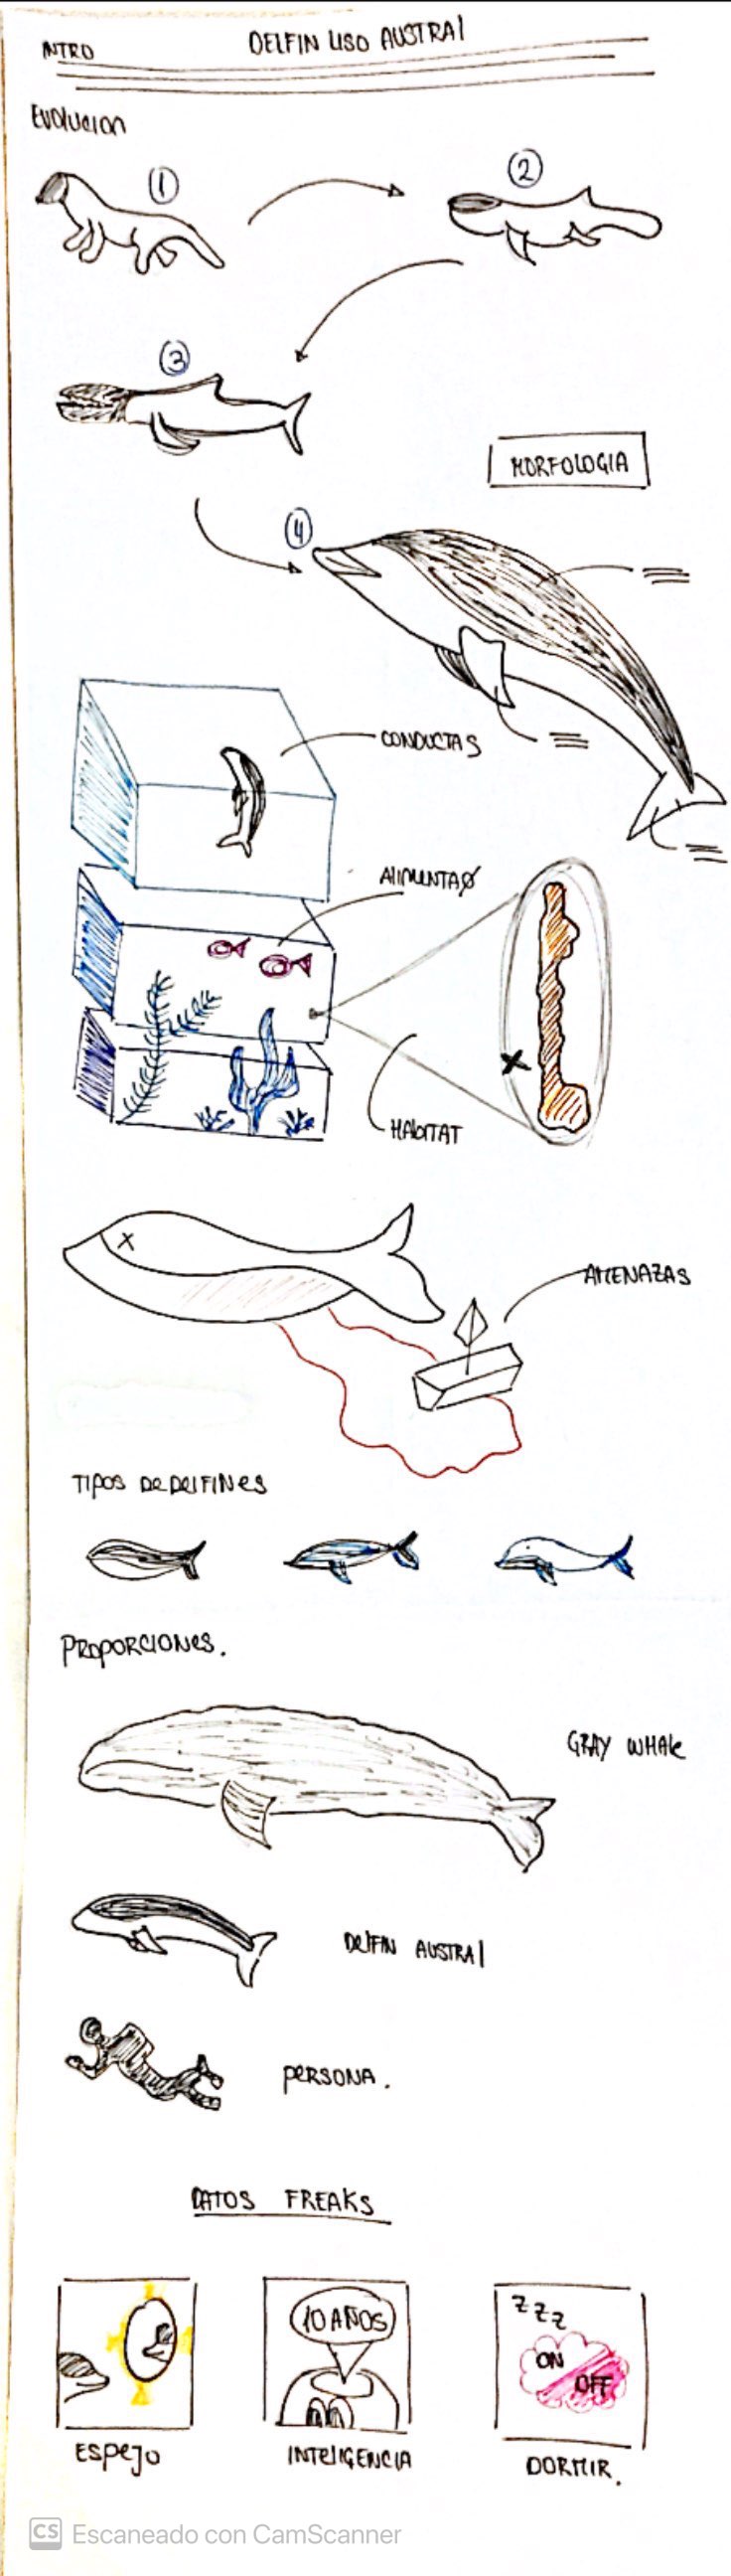 INTRO
DELFIN LISO AUSTRAL
EVOLUCION
1
2
3
MORFOLOGIA
4
CONDUCTAS
ALIMENTAØ
HABITAT
AMENAZAS
TIPOS DE DELFINES
PROPORCIONES.
GRAY WHALE
DELFIN AUSTRAL
PERSONA.
DATOS FREAKS
10 AÑOS
Z Z Z
ON
OFF
ESPEJO
INTELIGENCIA
DORMIR.
CS Escaneado con CamScanner